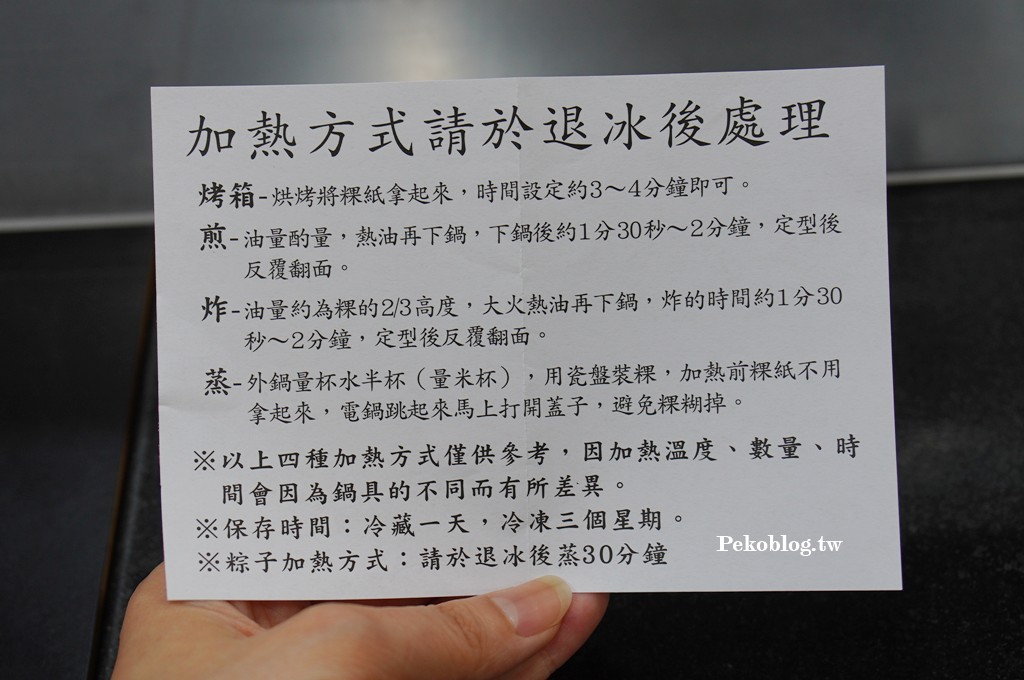 加熱方式請於退冰後處理
烤箱-烘烤將粿紙拿起來，時間設定約3～4分鐘即可。
煎-油量酌量，熱油再下鍋，下鍋後約1分30秒～2分鐘，定型後
反覆翻面。
炸-油量約為粿的2/3高度，大火熱油再下鍋，炸的時間約1分30
秒～2分鐘，定型後反覆翻面。
蒸-外鍋量杯水半杯（量米杯），用瓷盤裝粿，加熱前粿紙不用
拿起來，電鍋跳起來馬上打開蓋子，避免粿糊掉。
※以上四種加熱方式僅供參考，因加熱溫度、數量、時
間會因為鍋具的不同而有所差異。
※保存時間：冷藏一天，冷凍三個星期。
※粽子加熱方式：請於退冰後蒸30分鐘
Pekoblog.tw